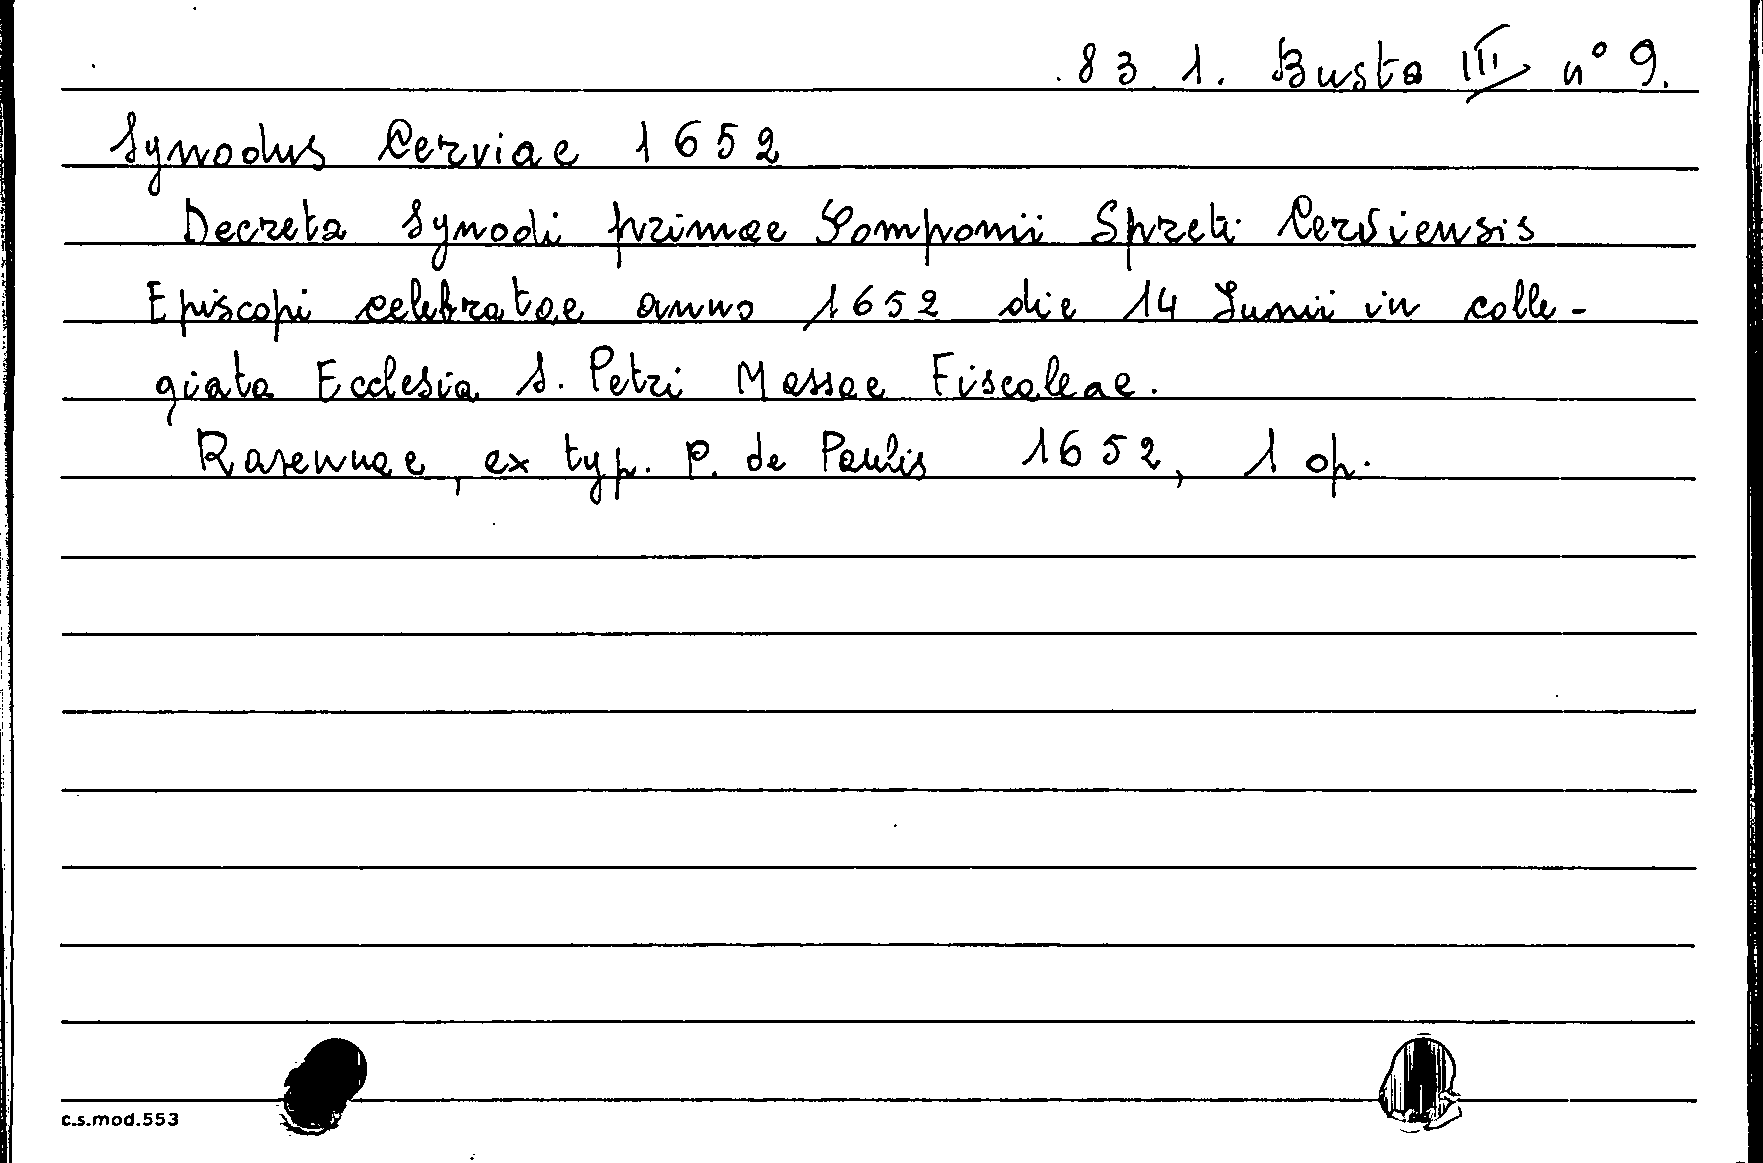 83.1. Busta III n° 9.
Synodus Cerviae 1652
Decreta Synodi primae Pomponii Spreti Cerviensis
Episcopi celebratae anno 1652 die 14 Junii in colle-
giata Ecclesia S. Petri Massae Fiscaleae.
Ravennae, ex typ. P. de Paulis 1652, 1 op.
c.s.mod.553